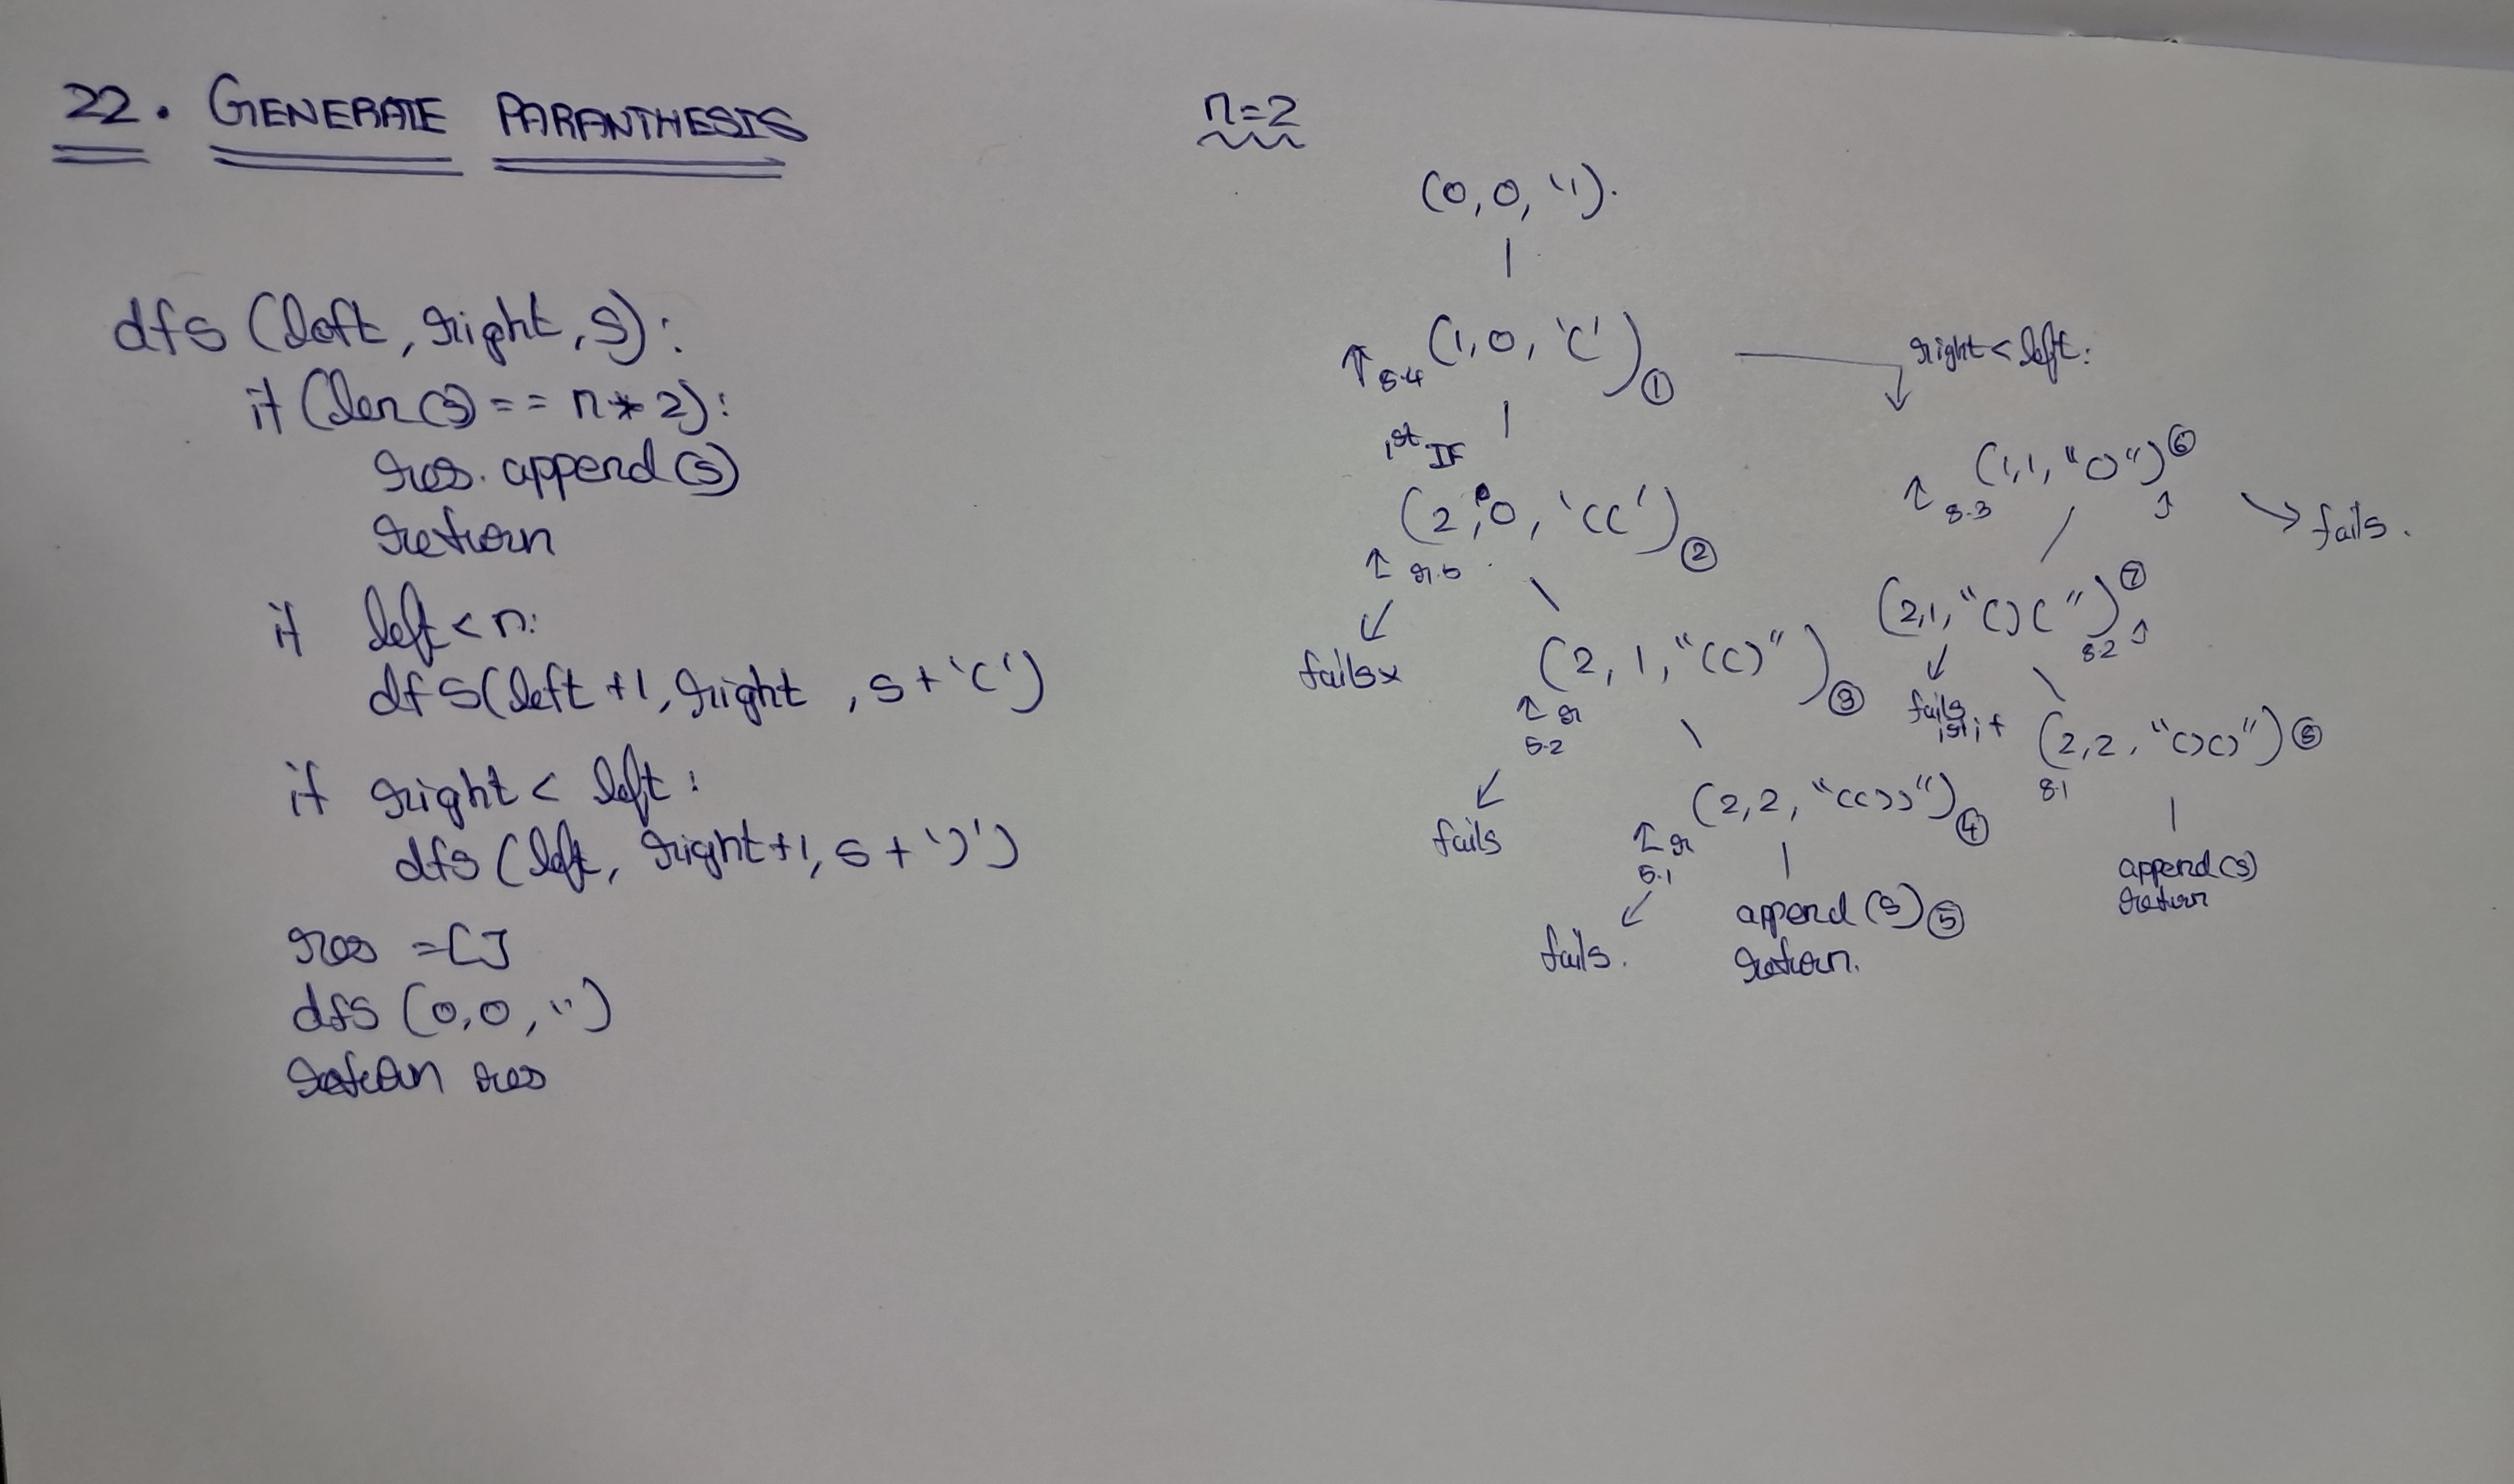 22. GENERATE PARANTHESIS
dfs (left, right, s):
if (len(s) == n * 2):
res. append(s)
return
if left < n:
dfs(left +1, right , s + '(')
if right < left :
dfs (left, right+1, s + ')')
res = []
dfs (0,0, '')
return res
n=2
(0, 0, '').
(1, 0, '(') ①
8.4
right < left:
1st IF
(2, 0, '((') ②
fails x
(2, 1, "(()") ③
r
5.2
fails
(2, 2, "(())") ④
r
5.1
fails.
append (s) ⑤
return.
(1, 1, "()") ⑥
8.3
fails.
(2, 1, "()(") ⑦
8.2
fails
1st if
(2, 2, "()()") ⑧
8.1
append(s)
return